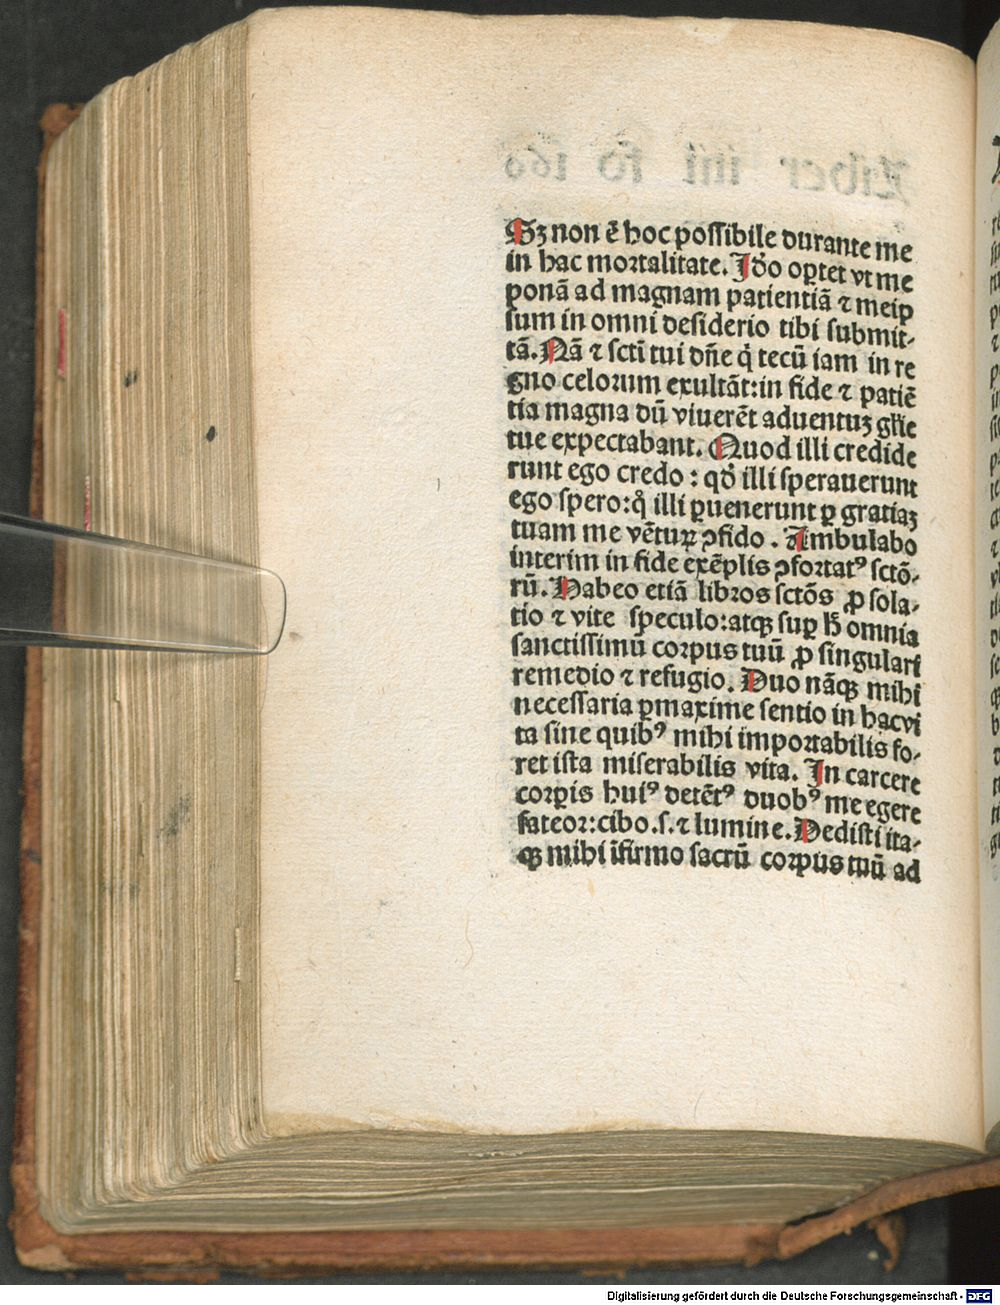 Sꝫ non ē hoc possibile durante me
in hac mortalitate. Iđo oꝑtet vt me
ponā ad magnam patientiā ⁊ meiꝑ
sum in omni desiderio tibi submit-
tā. Nā ⁊ scti tui dn̄e q̇ tecū iam in re
gno celorum exultāt: in fide ⁊ patiē
tia magna dū viuerēt aduentuꝫ gl̄ie
tue expectabant. Quod illi credide
runt ego credo: qđ illi sperauerunt
ego spero: q̊ illi ꝑuenerunt ꝑ gratiaꝫ
tuam me vētuꝝ ꝯfido. Ambulabo
interim in fide exēplis ꝯfortatꝰ sctō-
rū. Habeo etiā libros sctōs ꝓ sola-
tio ⁊ vite speculo: atqꝫ suꝑ h̄ omnia
sanctissimū corpus tuū ꝓ singulari
remedio ⁊ refugio. Duo nāqꝫ mihi
necessaria ꝑmaxime sentio in hac vi
ta sine quibꝰ mihi importabilis fo-
ret ista miserabilis vita. In carcere
corꝑis huiꝰ detētꝰ duobꝰ me egere
fateor: cibo .s. ⁊ lumine. Dedisti ita-
qꝫ mihi īfirmo sacrū corpus tuū ad
Digitalisierung gefördert durch die Deutsche Forschungsgemeinschaft - DFG